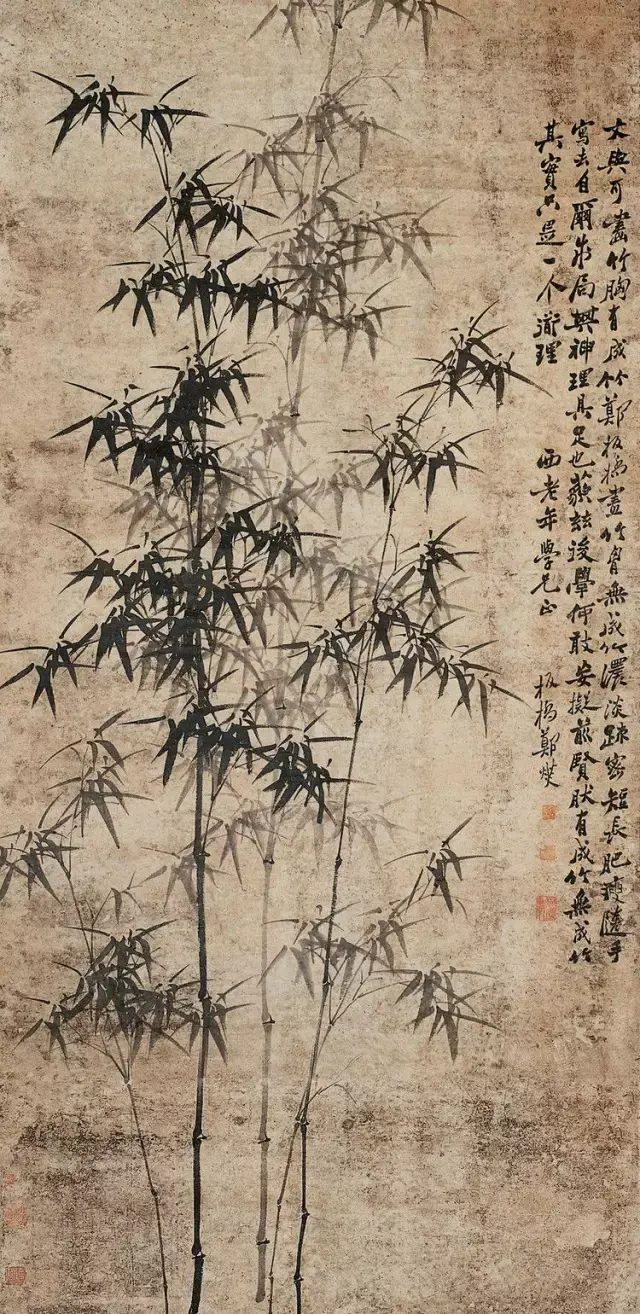 文與可畫竹胸有成竹鄭板橋畫竹胷無成竹濃淡疎密短長肥瘦隨手
寫去自爾成局其神理具足也藐茲後學何敢妄擬前賢肰有成竹無成竹
其實只是一个道理
西老年學兄正
板橋鄭燮